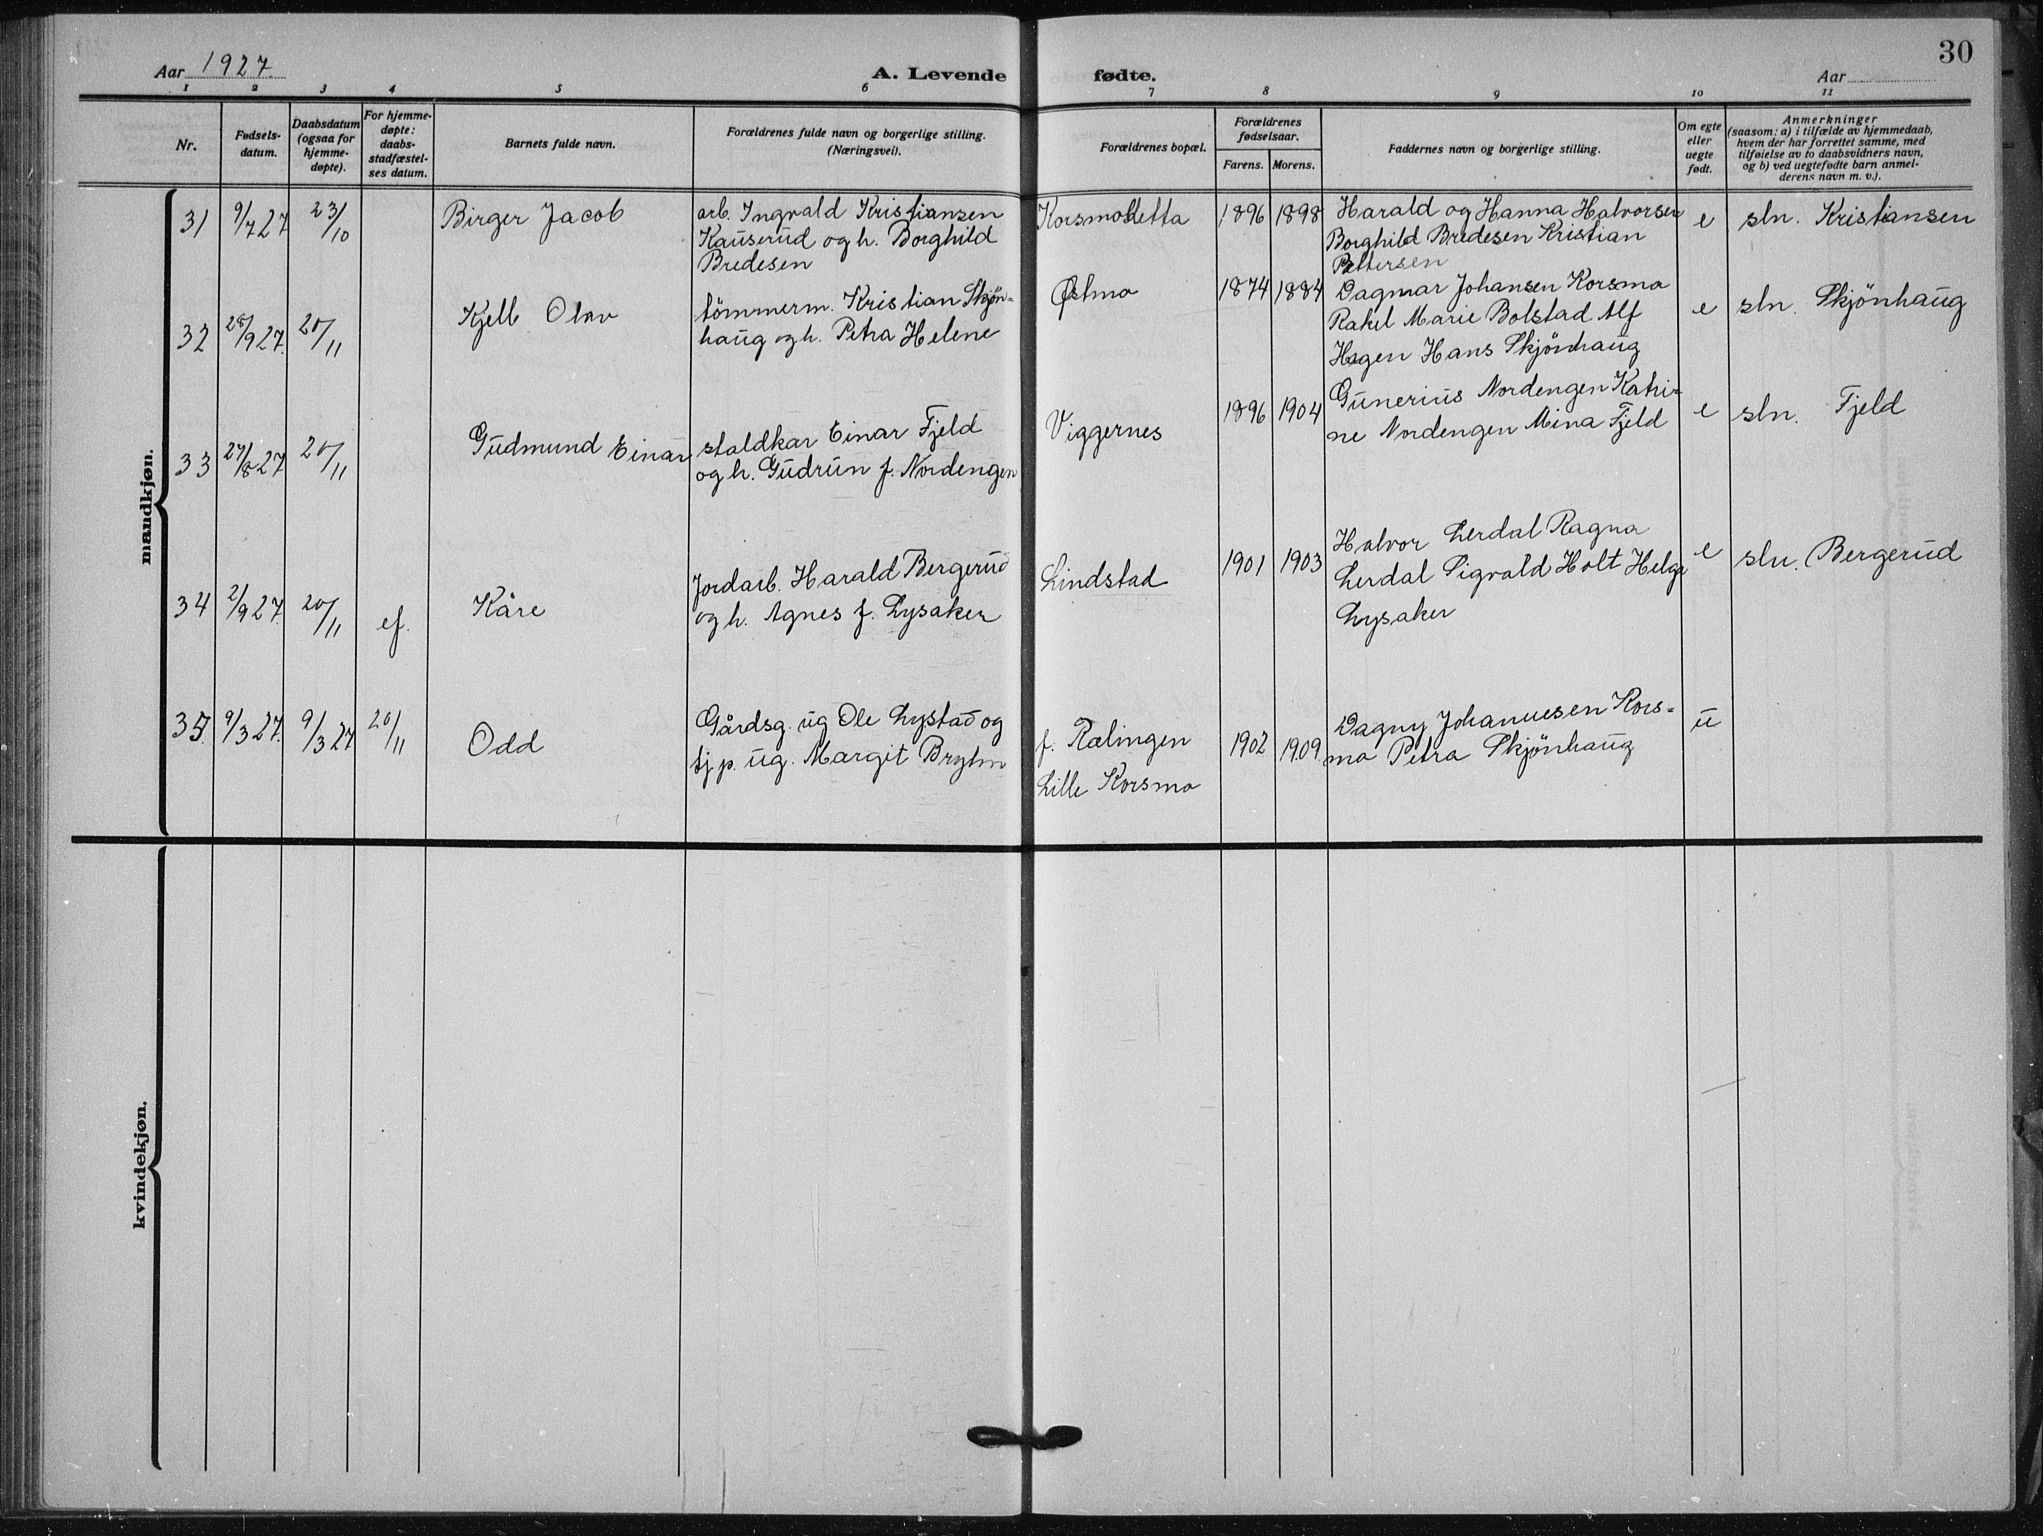 Aar 1927.
A. Levende fødte.
Aar
30
1 2 3 4 5 6 7 8 9 10 11
Nr.
Fødsels-
datum.
Daabsdatum
(ogsaa for
hjemme-
døpte).
For hjemme-
døpte:
daabs-
stadfæstel-
ses datum.
Barnets fulde navn.
Forældrenes fulde navn og borgerlige stilling.
(Næringsvei).
Forældrenes bopæl.
Forældrenes
fødselsaar.
Farens. Morens.
Faddernes navn og borgerlige stilling.
Om egte
eller
uegte
født.
Anmerkninger
(saasom: a) i tilfælde av hjemmedaab,
hvem der har forrettet samme, med
tilføielse av to daabsvidners navn,
og b) ved uegtefødte barn anmel-
derens navn m. v.).
mandkjøn.
31 9/7 27 23/10
Birger Jacob
arb. Ingvald Kristiansen
Kauserud og h. Borghild
Bredesen
Korsmosletta
1896 1898
Harald og Hanna Halvorsen
Borghild Bredesen Kristian
Pettersen
e
sln. Kristiansen
32 28/9 27. 20/11
Kjell Olav
tömmerm. Kristian Skjön-
haug og h. Petra Helene
Østmo
1874 1884
Dagmar Johansen Korsmo
Rakel Marie Bolstad Alf
Hagen Hans Skjönhaug
e
sln. Skjönhaug
33 27/8 27 20/11
Gudmund Einar
staldkar Einar Fjeld
og h. Gudrun f. Nordengen
Viggernes
1896 1904
Gunerius Nordengen Katri-
ne Nordengen Mina Fjeld
e
sln. Fjeld
34 2/9 27. 20/11 ef.
Kåre
Jordarb. Harald Bergerud
og h. Agnes f. Lysaker
Lindstad
1901 1903
Halvor Lerdal Ragna
Lerdal Sigvald Holt Helga
Lysaker
e
sln. Bergerud
35. 9/3 27. 9/3 27 20/11
Odd
Gårdsg. ug Ole Lystad og
tj.p. ug. Margit Brylm
f. Rælingen
Lille Korsmo
1902 1909
Dagny Johannesen Kors-
mo Petra Skjönhaug
u
kvindekjøn.